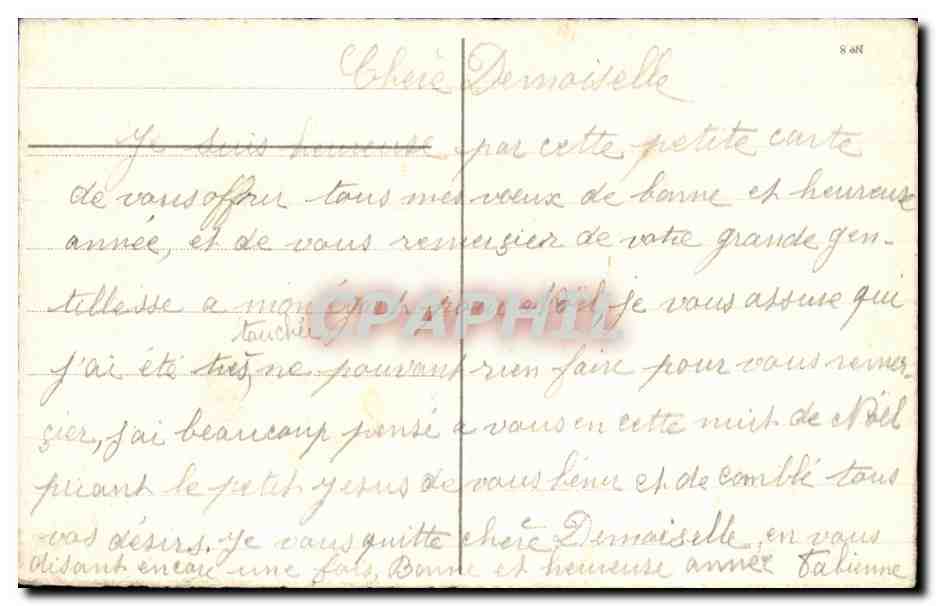 8 oN
Chère Demoiselle
Je suis heureuse par cette petite carte
de vous offrir tous mes voeux de bonne et heureuse
année, et de vous remerçier de votre grande gen-
tillesse a mon égard pour Noël, je vous assure qui
touchée
j'ai été très, ne pouvant rien faire pour vous remer-
çier, j'ai beaucoup pensé a vous en cette nuit de Nöel
priant le petit Jesus de vous bénir et de comblé tous
vos désirs. Je vous quitte chère Demoiselle, en vous
disant encore une fois, Bonne et heureuse année Fabienne
CPAPHIL